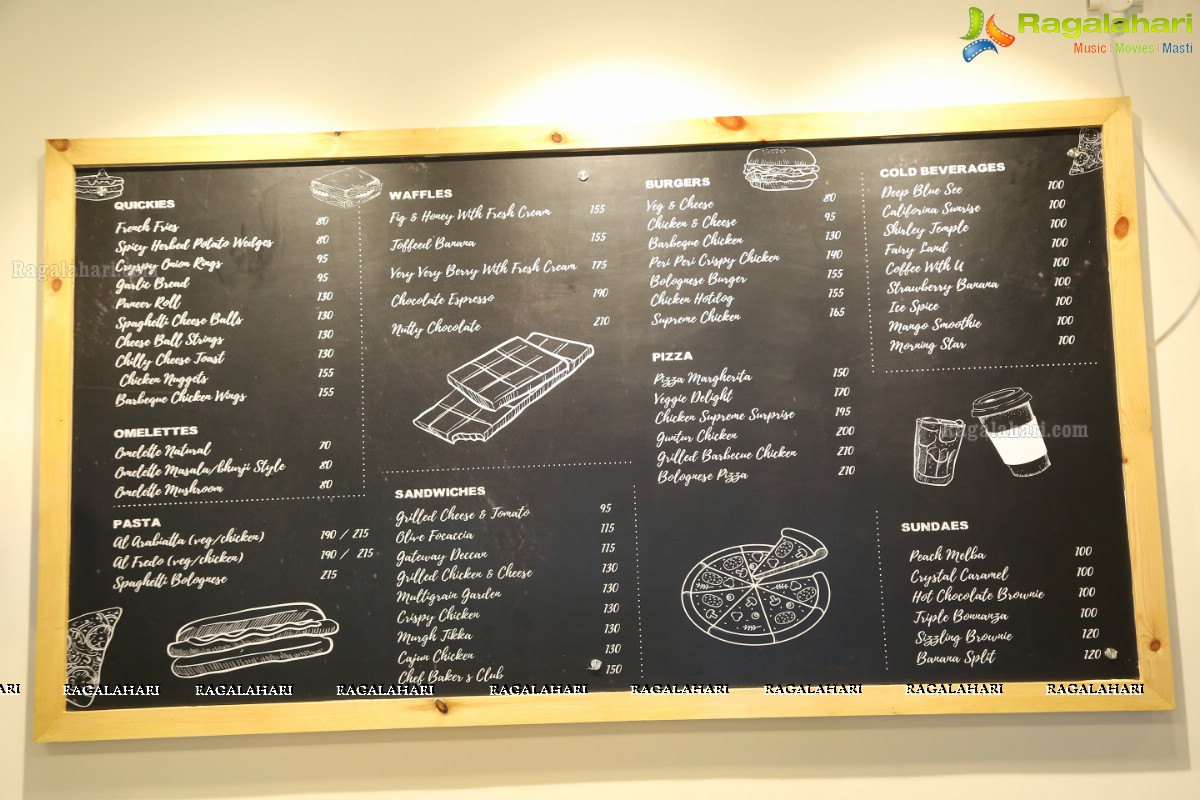 Ragalahari
Music | Movies | Masti
QUICKIES
French Fries 80
Spicy Herbed Potato Wedges 80
Cryspy Onion Rings 95
Garlic Bread 95
Paneer Roll 130
Spaghetti Cheese Balls 130
Cheese Ball Strings 130
Chilly Cheese Toast 130
Chicken Nuggets 155
Barbeque Chicken Wings 155
OMELETTES
Omelette Natural 70
Omelette Masala/bhurji Style 80
Omelette Mushroom 80
PASTA
Al Arabiatta (veg/chicken) 190 / 215
Al Fredo (veg/chicken) 190 / 215
Spaghetti Bolognese 215
WAFFLES
Fig & Honey With Fresh Cream 155
Toffeed Banana 155
Very Very Berry With Fresh Cream 175
Chocolate Espresso 190
Nutty Chocolate 210
SANDWICHES
Grilled Cheese & Tomato 95
Olive Focaccia 115
Gateway Deccan 115
Grilled Chicken & Cheese 130
Multigrain Garden 130
Crispy Chicken 130
Murgh Tikka 130
Cajun Chicken 130
Chef Baker s Club 150
BURGERS
Veg & Cheese 80
Chicken & Cheese 95
Barbeque Chicken 130
Peri Peri Crispy Chicken 140
Bolognese Burger 155
Chicken Hotdog 155
Supreme Chicken 165
PIZZA
Pizza Margherita 150
Veggie Delight 170
Chicken Supreme Surprise 195
Guntur Chicken 200
Grilled Barbecue Chicken 210
Bolognese Pizza 210
COLD BEVERAGES
Deep Blue See 100
Califorina Sunrise 100
Shirley Temple 100
Fairy Land 100
Coffee With U 100
Strawberry Banana 100
Ice Spice 100
Mango Smoothie 100
Morning Star 100
SUNDAES
Peach Melba 100
Crystal Caramel 100
Hot Chocolate Brownie 100
Triple Bonnanza 100
Sizzling Brownie 120
Banana Split 120
Ragalahari.com
Ragalahari.com
ARI RAGALAHARI RAGALAHARI RAGALAHARI RAGALAHARI RAGALAHARI RAGALAHARI RAGALAHARI RAGALAHARI